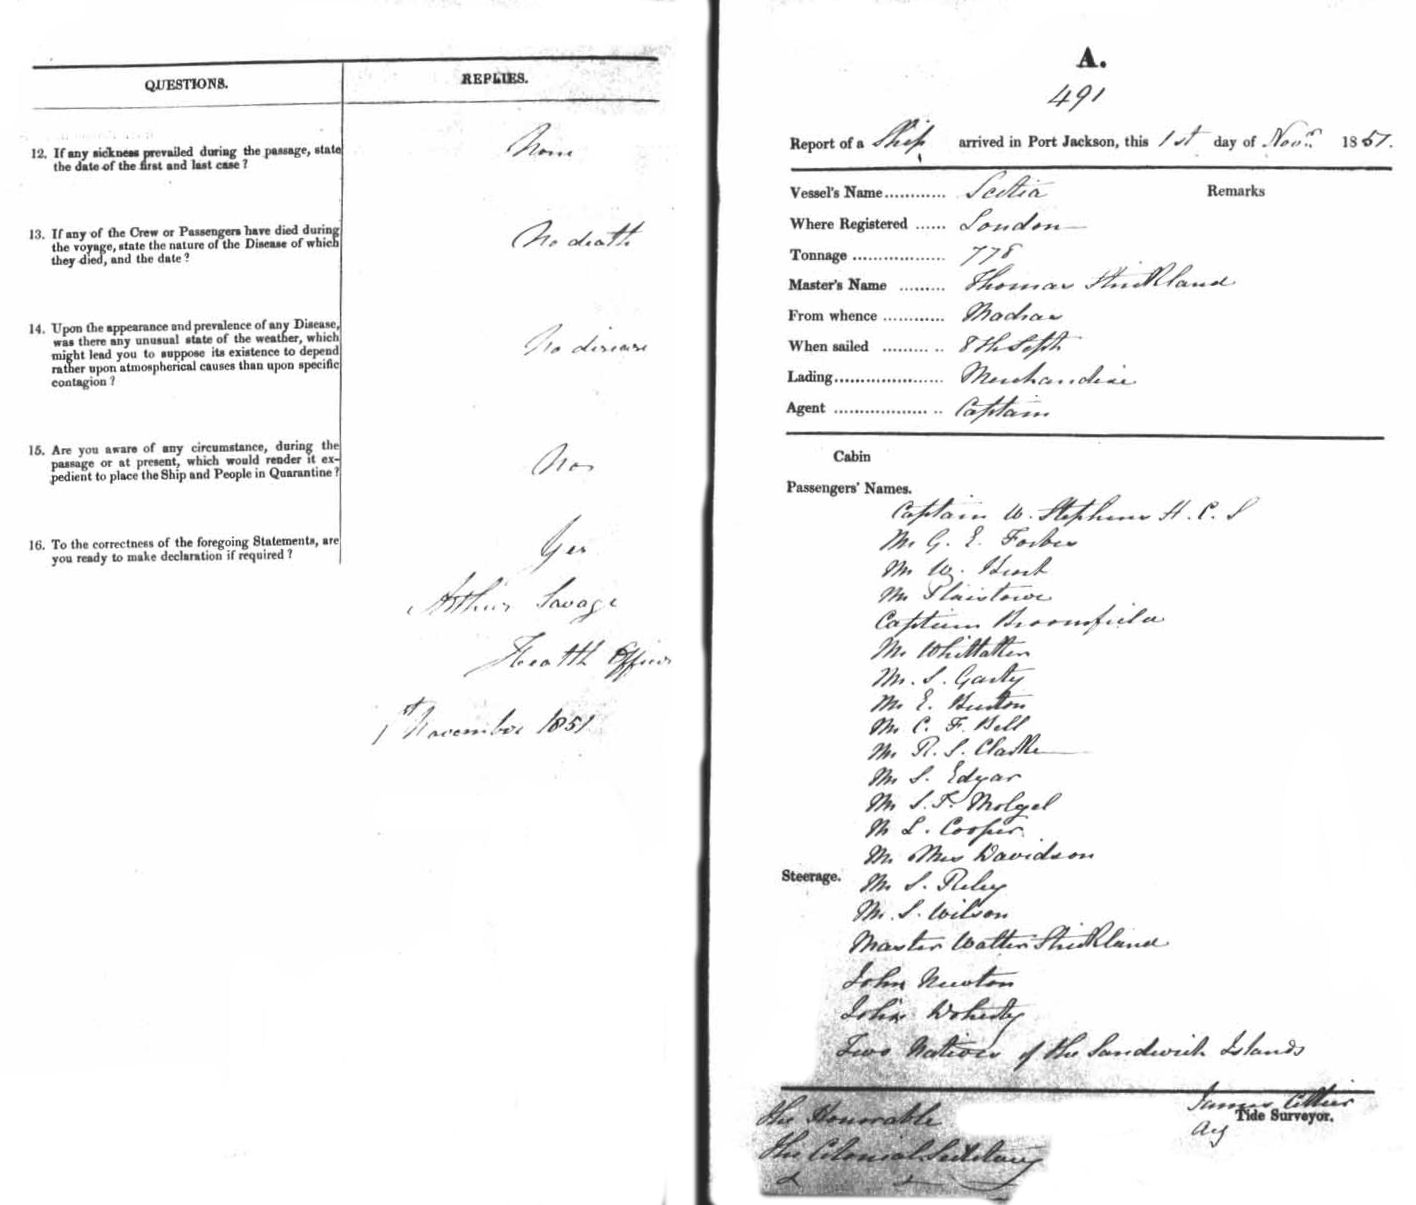 QUESTIONS.
REPLIES.
12. If any sickness prevailed during the passage, state
the date of the first and last case?
None
13. If any of the Crew or Passengers have died during
the voyage, state the nature of the Disease of which
they died, and the date?
No death
14. Upon the appearance and prevalence of any Disease,
was there any unusual state of the weather, which
might lead you to suppose its existence to depend
rather upon atmospherical causes than upon specific
contagion?
No disease
15. Are you aware of any circumstance, during the
passage or at present, which would render it ex-
pedient to place the Ship and People in Quarantine?
No
16. To the correctness of the foregoing Statements, are
you ready to make declaration if required?
Yes
Arthur Savage
Health Officer
1st November 1851
A.
491
Report of a Ship arrived in Port Jackson, this 1st day of Novr. 1851.
Vessel's Name............ Scotia
Remarks
Where Registered ...... London
Tonnage .................. 778
Master's Name ......... Thomas Strickland
From whence ............ Madras
When sailed ......... .. 8th Sept
Lading..................... Merchandise
Agent .................. .. Captain
Cabin
Passengers' Names.
Captain W. Stephens H. C. S
Mr G. E. Forbes
Mr W.
Mr Plaistowe
Captain Broomfield
Mr Whittaker
Mr. S. Garty
Mr E. Burton
Mr C. F. Bell
Mr R. S. Clarke
Mr S. Edgar
Mr S. F. Molgel
M L. Cooper
Mr Mrs Davidson
Steerage.
Mr S. Riley
Mr. S. Wilson
Master Walter Strickland
John Newton
John Doherty
Two Natives of the Sandwich Islands
James
Actg Tide Surveyor.
The Honorable
The Colonial Secretary